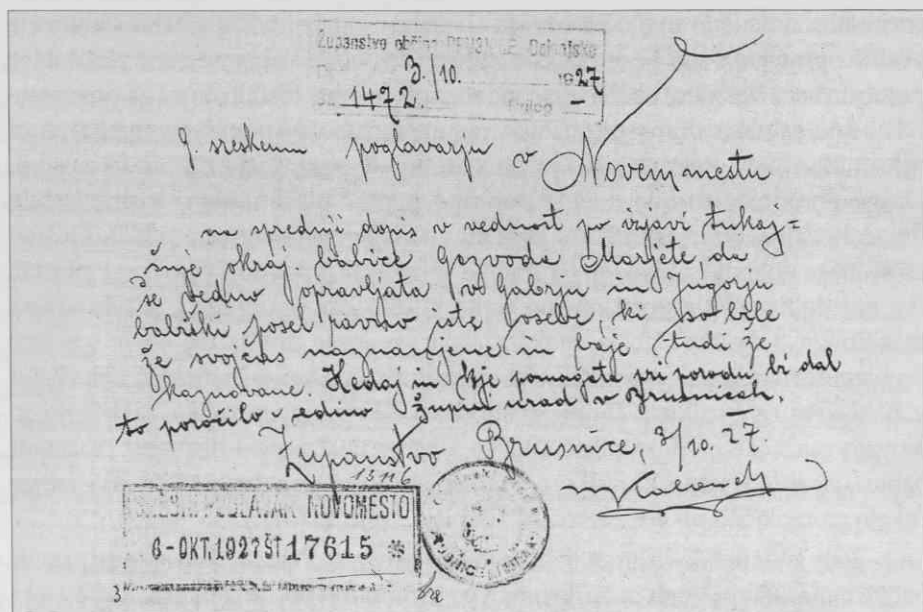 Županstvo občine BRUSNICE, Dolenjsko
3/10. 1927
1472.
Sreskemu poglavarju v Novemmestu
na sprednji dopis v vednost po izjavi tukaj=
šnje okrož. babice Gazvoda Marjete da
se vedno opravljata v Gabrju in Jugorju
babiški posel ravno iste osebe, ki so bile
že svojčas naznanjene in baje tudi že
kaznovane. Kedaj in kje pomagate pri porodu, bi dal
to poročilo edino župni urad v Brusnicah.
Županstvo Brusnice, 3/10. 27.
13116
SRESKI POGLAVAR NOVOMESTO
6-OKT.1927 ŠT 17615